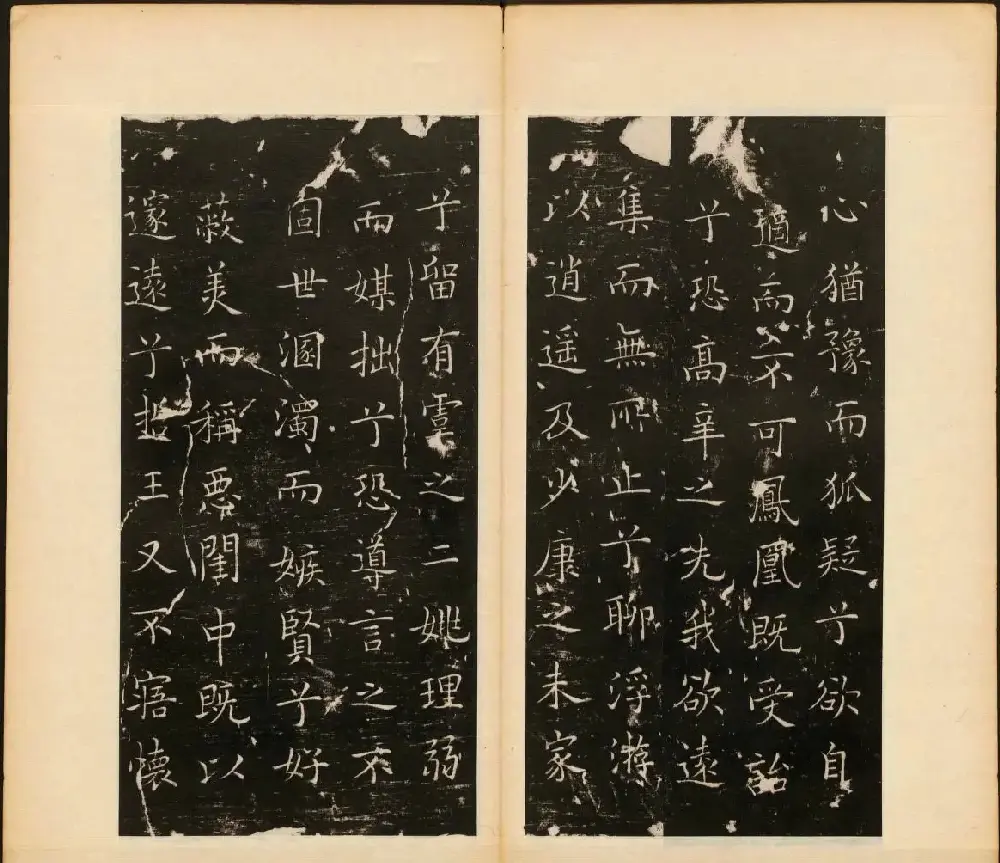 心猶豫而狐疑兮欲自
適而不可鳳凰既受詒
兮恐高辛之先我欲遠
集而無所止兮聊浮游
以逍遥及少康之未家
兮留有虞之二姚理弱
而媒拙兮恐導言之不
固世溷濁而嫉賢兮好
蔽美而稱惡閨中既以
邃遠兮哲王又不寤懷